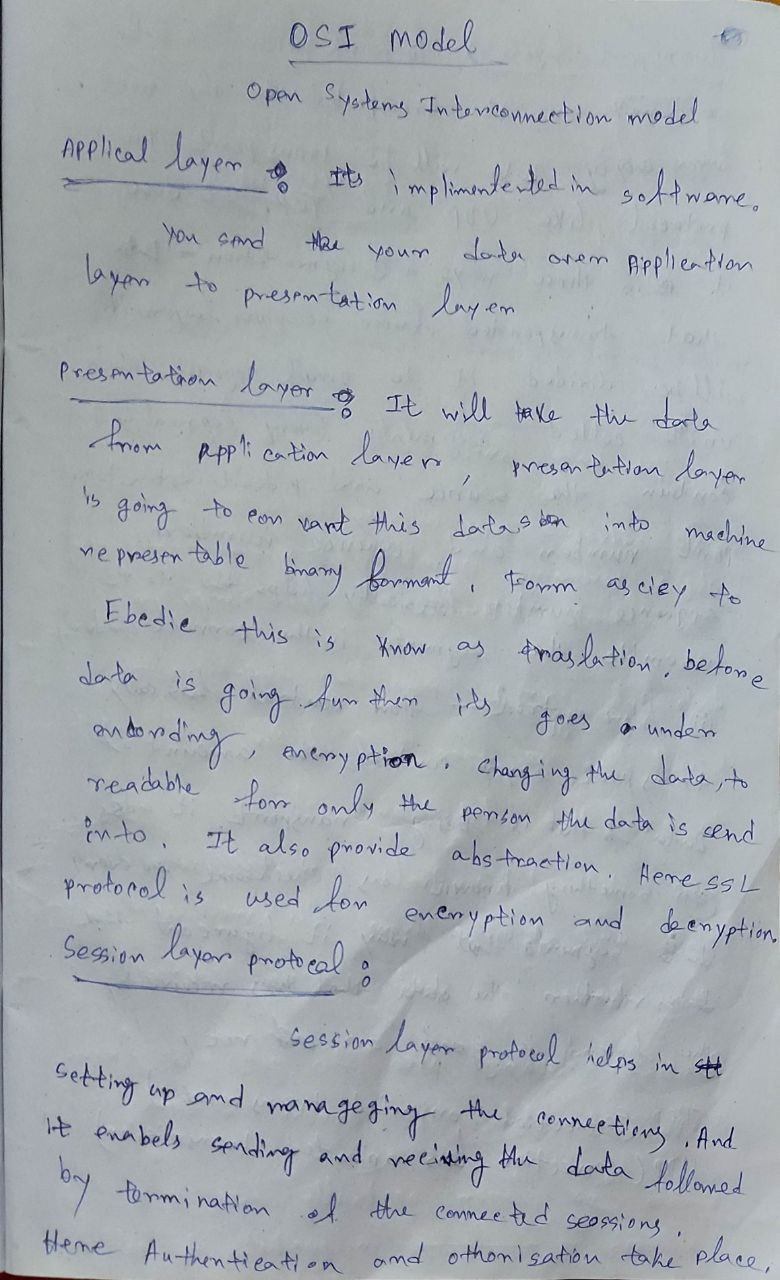 OSI Model
Open Systems Interconnection model
Applical layer : Its implimentented in software.
You send the your data over Application
layer to presentation layer
Presentation layer : It will take the data
from application layer, presentation layer
is going to convart this datas into machine
representable binary formant. Form asciey to
Ebedic this is know as traslation. before
data is going further its goes under
encryption. Changing the data, to
readable for only the person the data is send
into. It also provide abstraction. Here SSL
protocol is used for encryption and decryption.
Session layer protocal :
Session layer protocol helps in
Setting up and manageging the connections. And
it enabels sending and reciving the data followed
by termination of the connected seossions.
Here Authentication and othorisation take place.